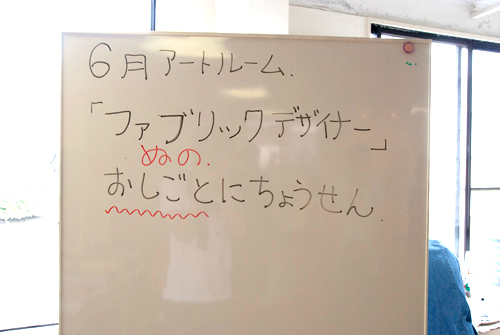 6月アートルーム.
「ファブリックデザイナー」
ぬの.
おしごとにちょうせん.